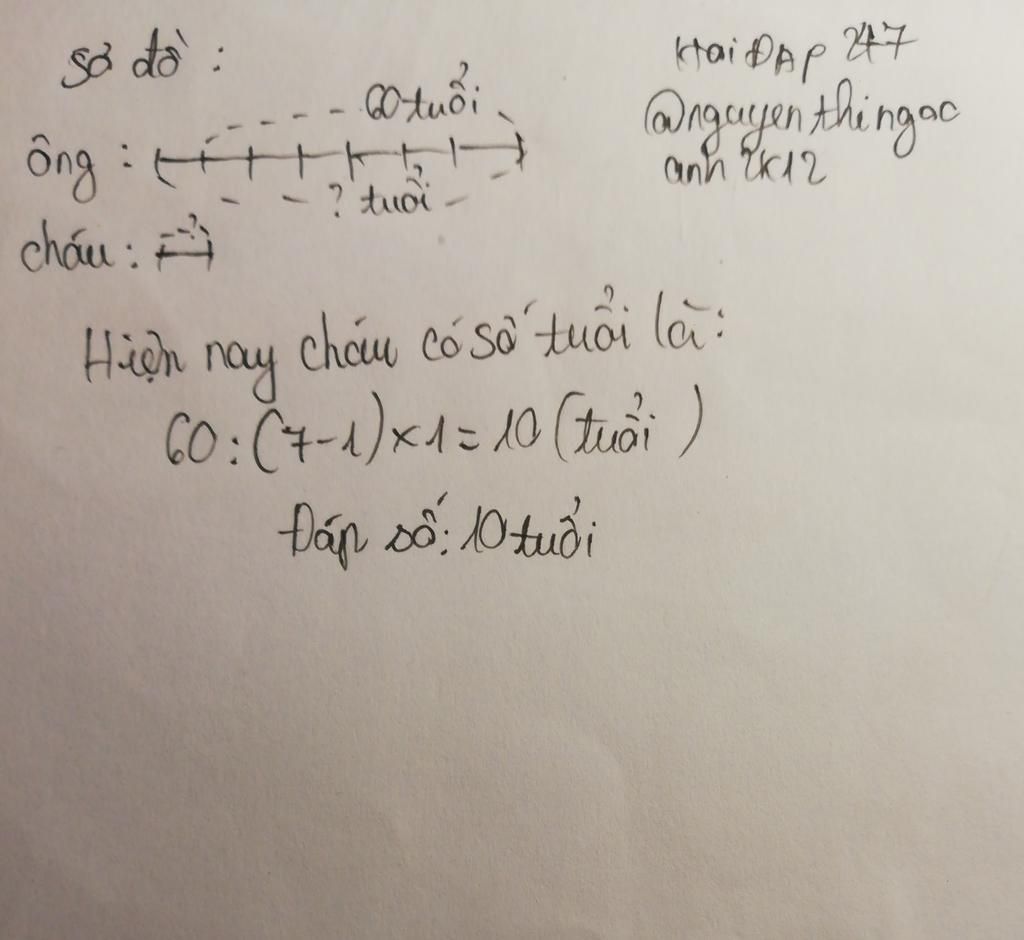 Sơ đồ :
60 tuổi
ông :
? tuổi
cháu :
?
HỏiĐAp 247
@nguyenthingoc
anh 2k12
Hiện nay cháu có số tuổi là :
60 : (7-1) x 1 = 10 (tuổi)
Đáp số: 10 tuổi